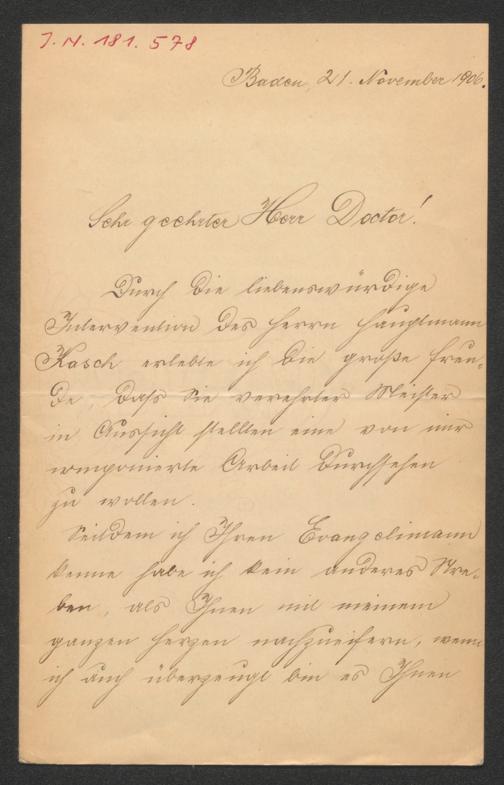 J.N. 181.578
Baden, 21. November 1906.
Sehr geehrter Herr Doctor!
Durch die liebenswürdige
Intervention des Herrn Hauptmann
Kasch erlebte ich die große Freu-
de, daß Sie verehrter Meister
in Aussicht stellten eine von mir
componierte Arbeit durchsehen
zu wollen.
Seitdem ich Ihren Evangelimann
kenne habe ich kein anderes Stre-
ben, als Ihnen mit meinem
ganzen Herzen nachzueifern, wenn
ich auch überzeugt bin es Ihnen